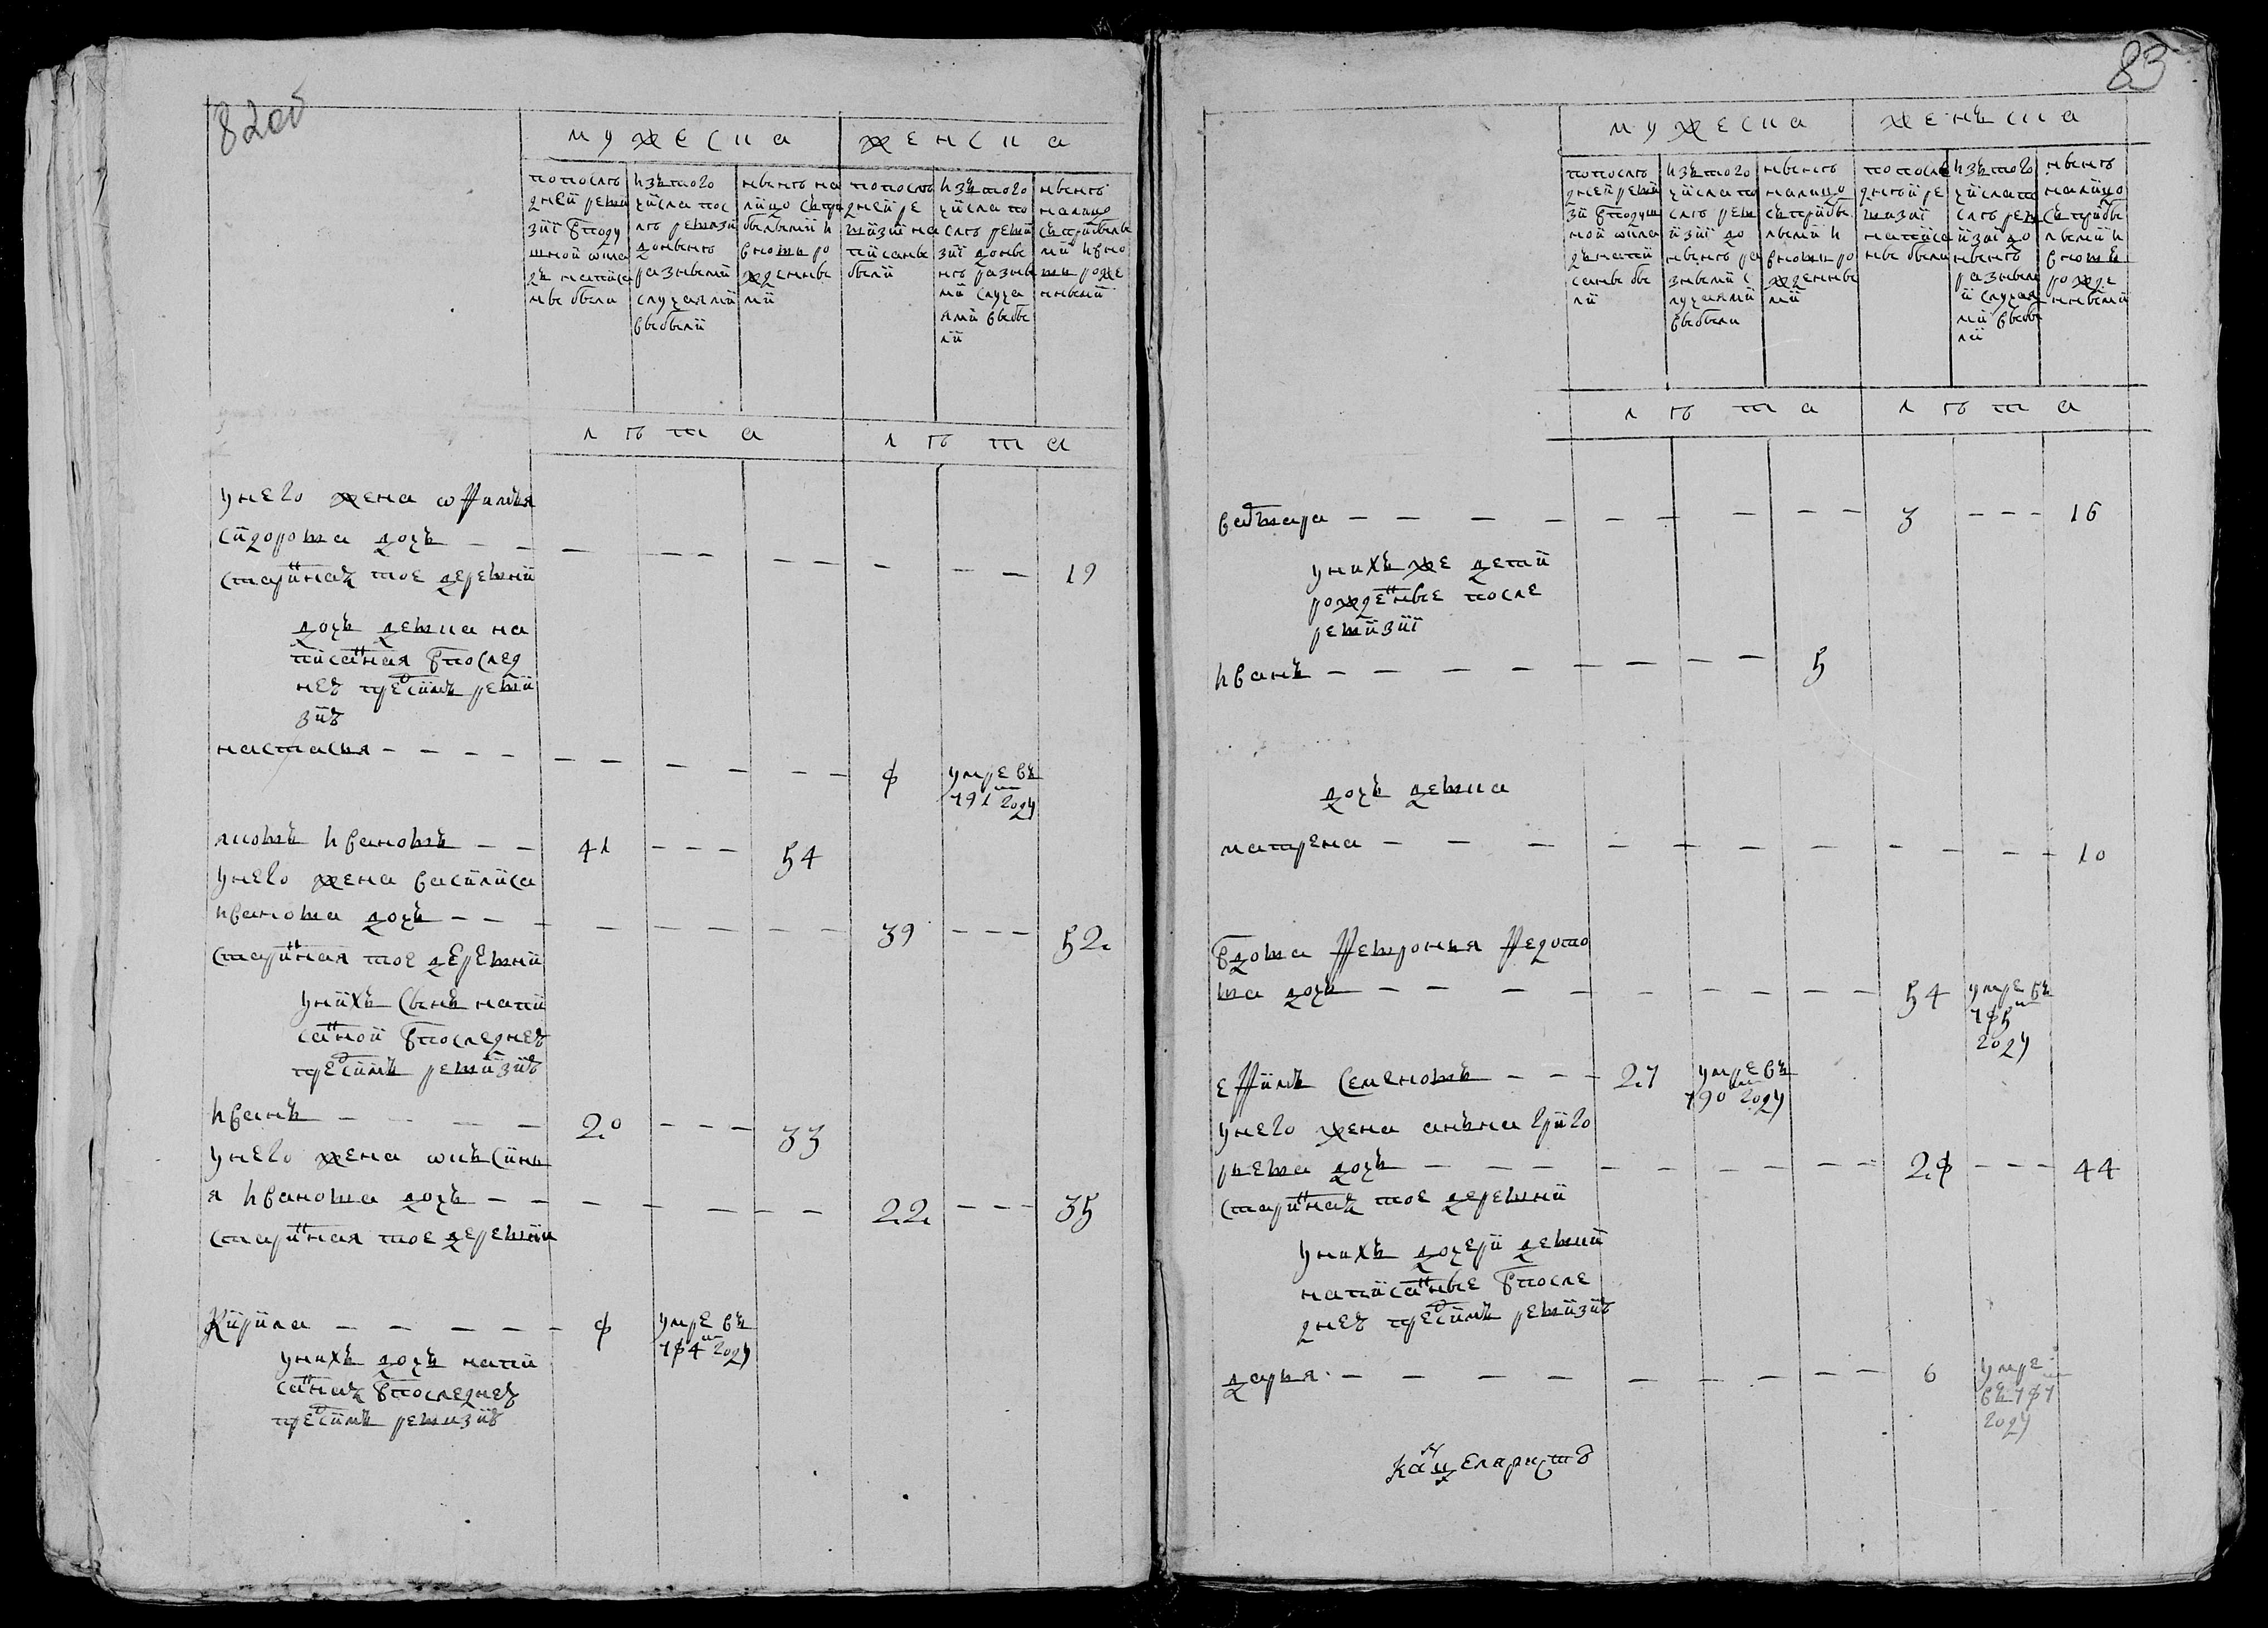 82об
мужеска
женска
по после
дней реви
зии в поду
шной окла
дъ написа
ны были
изъ того
числа пос
лѣ ревизи
до нынѣ
разными
случаями
выбыли
нынѣ на
лицо съ при
былыми и
вновь ро
жденны
ми
по послѣ
дней ре
визии на
писаны
были
изъ того
числа по
слѣ реви
зии до ны
нѣ разны
ми случа
ями выбы
ли
нынѣ
налицо
съ прибылы
ми и вно
вь рожде
нными
лѣта
лѣта
у него жена офимья
сидорова дочь — — — — — — — — — 19
старинная тое деревни
дочь девка на
писаная в послед
ней пред симъ реви
зии
настасья — — — — — — — — — 8 умре въ
791м году
яковъ ивановъ — — 41 — — — 54
у него жена василиса
иванова дочь — — — — — — — — 39 — — — 52
старинная тое деревни
у нихъ сынъ напи
санной в последней
пред симъ ревизии
иванъ — — — 20 — — — 33
у него жена оксинь
я иванова дочь — — — — — — — 22 — — — 35
старинная тое деревни
Кирила — — — — — 8 умре въ
784м году
у нихъ дочь напи
санная в последней
пред симъ ревизии
83
мужеска
женъска
по послѣ
дней реви
зии в подуш
ной окла
дъ напи
саны бы
ли
изъ того
числа по
слѣ рев
изии до
нынѣ ра
зными с
лучаями
выбыли
нынѣ
налицо
съ прибы
лыми и
вновь ро
жденны
ми
по послѣ
дней ре
визии
написа
ны были
изъ того
числа по
слѣ рев
изии до
нынѣ
разными
случая
ми выбы
ли
нынѣ
налицо
съ прибы
лыми и
вновь
рожде
нными
лѣта
лѣта
варвара — — — — — — — — — 3 — — — 16
у нихъ же детей
рожденные после
ревизии
иванъ — — — — — — — — 5
дочь девка
матрена — — — — — — — — — — — 10
вдова февронья федото
ва дочь — — — — — — — — — 54 умре въ
785м
году
ефимъ семеновъ — — — 27 умре въ
790м году
у него жена анъна григо
рьева дочь — — — — — — — — — 28 — — — 44
старинная тое деревни
у нихъ дочери девки
написанные в после
дней пред симъ ревизии
дарья — — — — — — — — — 6 умре
въ 787м
году
Канцеляристъ